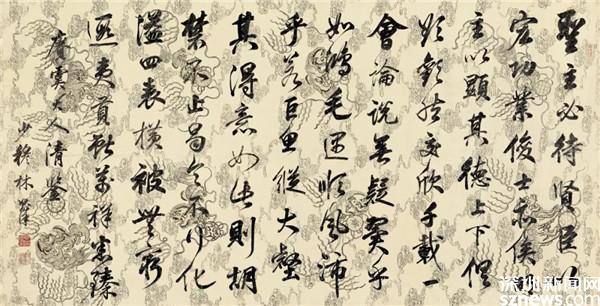 聖主必待賢臣
宏功業俊士亦俟
主以顯其德上下俱
欲歡然交欣千載一
會論說無疑翼乎
如鴻毛遇順風沛
乎若巨魚縱大壑
其得意如此則胡
禁不止曷令不行化
溢四表橫被無窮
遐夷貢獻萬祥畢臻
大人清鑒
少穆林則徐
深圳新闻网
sznews.com